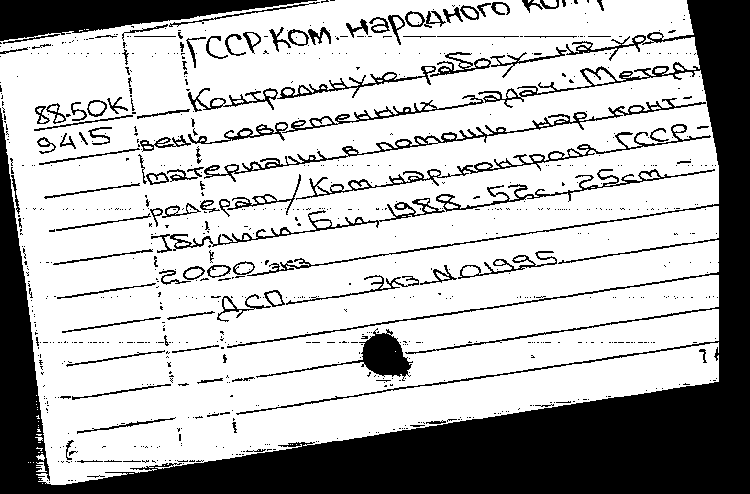 ГССР. Ком. народного конт
88-50К
9415
Контрольную работу - на уро-
вень современных задач: Метод.
материалы в помощь нар. конт-
ролерам / Ком. нар. контроля ГССР. -
Тбилиси: Б.и., 1988. - 52с.; 25см. -
2000 экз
ДСП. Экз. N 01995.